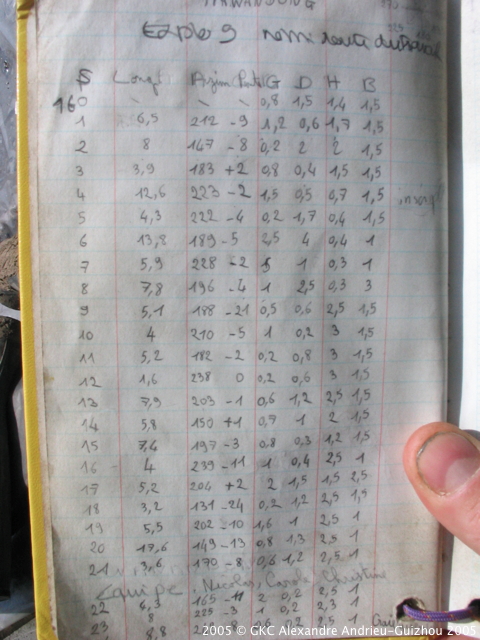 MAWANDONG
S Longr Azim Pente G D H B
160 \ \ \ 0,8 1,5 1,4 1,5
1 6,5 212 -9 1,2 0,6 1,7 1,5
2 8 147 -8 0,2 2 2 1,5
3 3,9 183 +2 0,8 0,4 1,5 1,5
4 12,6 223 -2 1,5 0,5 0,7 1,5
5 4,3 222 -4 0,2 1,7 0,4 1,5
6 13,8 189 -5 2,5 4 0,4 1
7 5,9 228 -2 5 1 0,3 1
8 7,8 196 -4 1 2,5 0,3 3
9 5,1 188 -21 0,5 0,6 2,5 1,5
10 4 210 -5 1 0,2 3 1,5
11 5,2 182 -2 0,2 0,8 3 1,5
12 1,6 238 0 0,2 0,6 3 1,5
13 7,9 203 -1 0,6 1,2 2,5 1,5
14 5,8 150 +1 0,7 1 2 1,5
15 7,4 197 -3 0,8 0,3 1,2 1,5
16 4 239 -11 1 0,4 2,5 1
17 5,2 204 +2 2 1,5 1,5 2,5
18 3,2 131 -24 0,2 1,2 2,5 1,5
19 5,5 202 -10 1,6 1 2,5 1
20 17,6 149 -13 0,8 1,3 2,5 1
21 3,6 170 -8 0,6 1,2 2,5 1
Equipe, Nicolas, Carole, Christine
22 6,3 165 -11 2 0,2 2,5 1
8 225 -3 1 0,2 2,3 1
23 8,8 2,5 1
2005 © GKC Alexandre Andrieu-Guizhou 2005